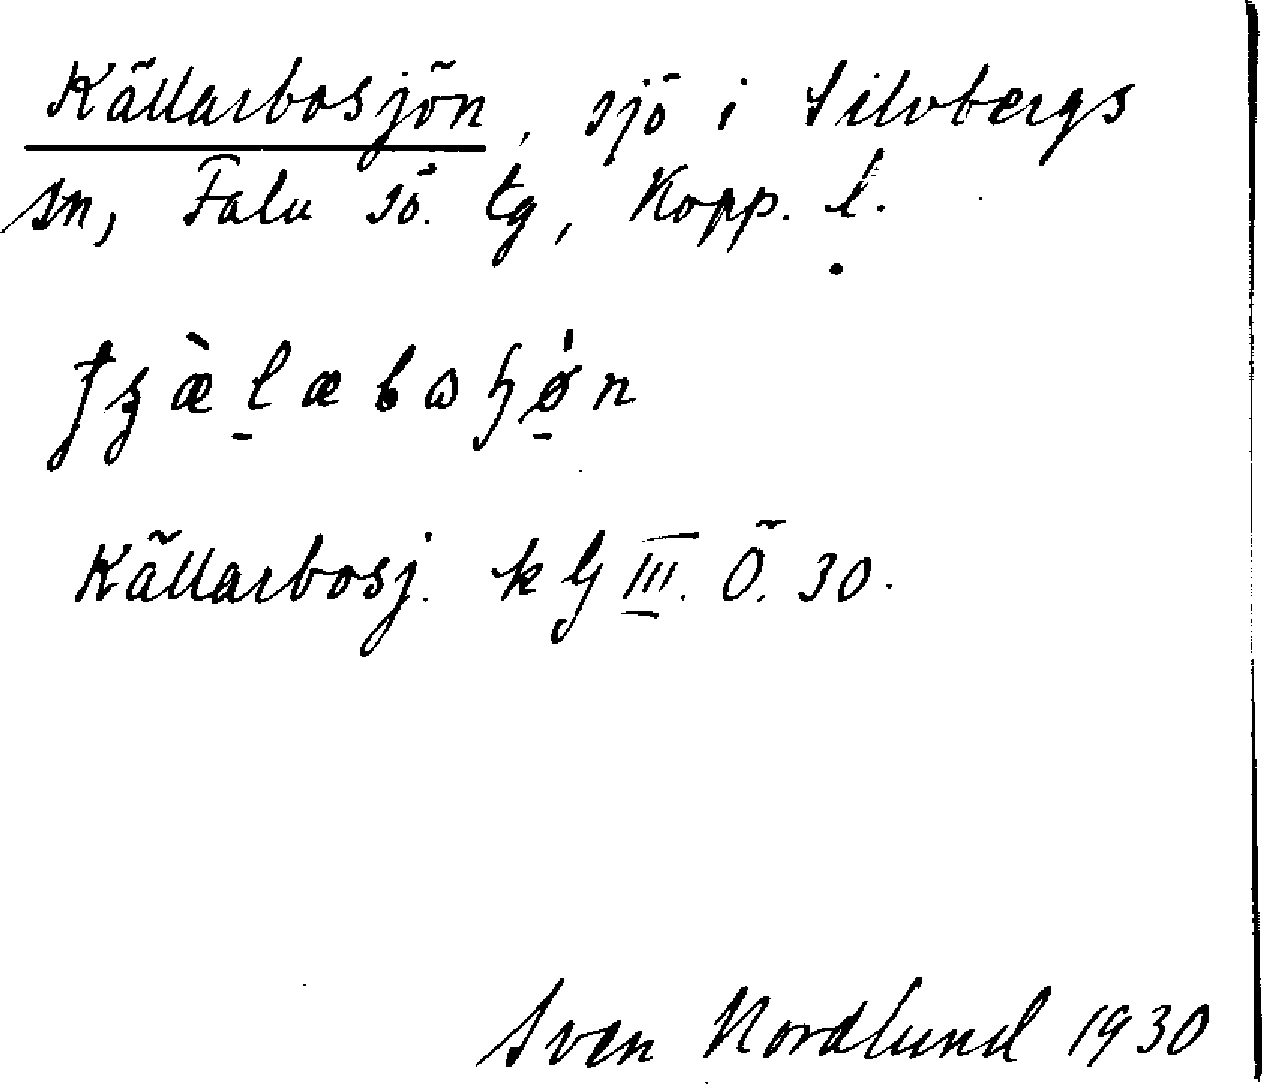 Källarbosjön, sjö i Silvbergs
sn, Falu sö. tg, Kopp. l.
Källarbosj. k G III. Ö. 30.
Sven Nordlund 1930